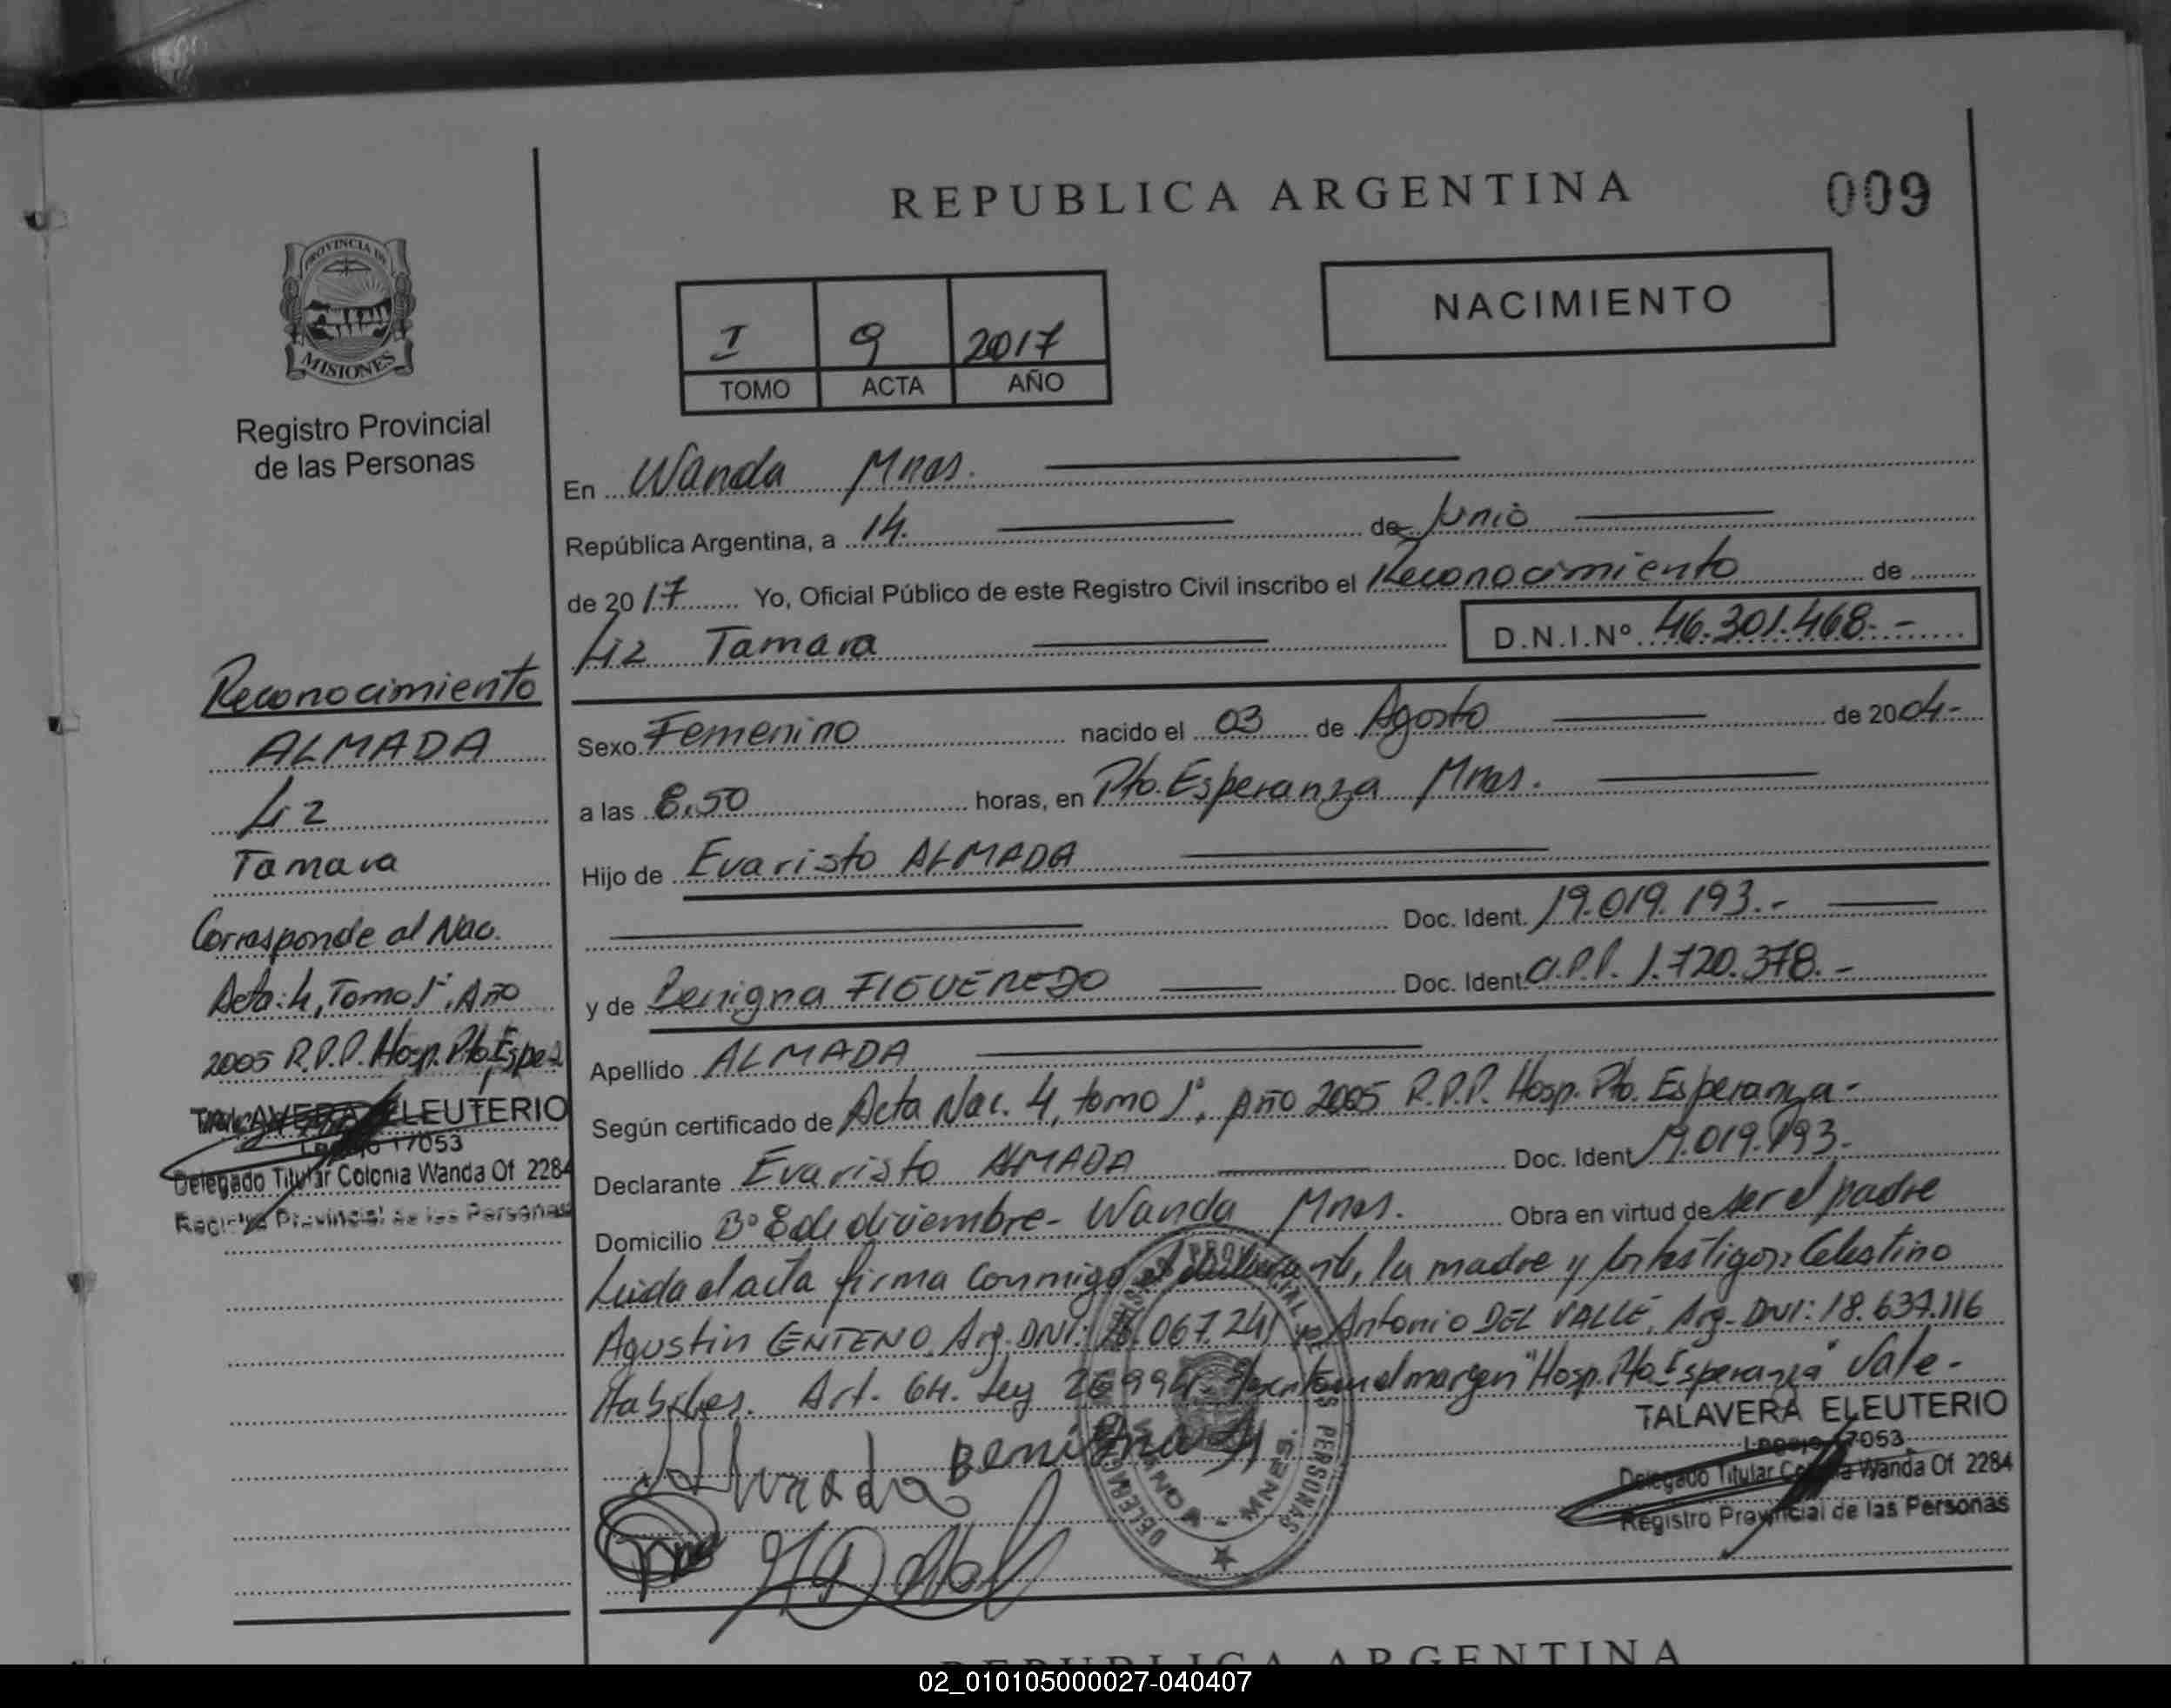 REPUBLICA ARGENTINA
009
PROVINCIA DE
MISIONES
Registro Provincial
de las Personas
NACIMIENTO
I 9 2017
TOMO ACTA AÑO
En Wanda Mnes.
República Argentina, a 14. de Junio
de 2017 Yo, Oficial Público de este Registro Civil inscribo el Reconocimiento de
Liz Tamara D.N.I.Nº 46.301.468.-
Sexo Femenino nacido el 03 de Agosto de 2004-
a las 8.50 horas, en Pto. Esperanza Mnes.
Hijo de Evaristo ALMADA
Doc. Ident. 19.019.193.-
y de Benigna FIGUEREDO Doc. Ident. C.I.P. 1.720.378.-
Apellido ALMADA
Según certificado de Acta Nac. 4, tomo 1º, Año 2005 R.P.P. Hosp. Pto. Esperanza-
Declarante Evaristo ALMADA Doc. Ident 19.019.193.
Domicilio Bº 8 de diciembre- Wanda Mnes. Obra en virtud de ser el padre
Leida el acta firma conmigo el declarante, la madre y los testigos: Celestino
Agustin CENTENO, Arg. DNI: 067.241 y Antonio DEL VALLE, Arg. DNI: 18.637.116
Habiles. Art. 64. Ley 26994 el margen "Hosp. Pto Esperanza" Vale-
Almada Benigna
TALAVERA ELEUTERIO
Legajo 17053
Delegado Titular Colonia Wanda Of 2284
Registro Provincial de las Personas
DELEGACION
WANDA - MNES.
Reconocimiento
ALMADA
Liz
Tamara
Corresponde al Nac.
Acta: 4, Tomo 1º, Año
2005 R.P.P. Hosp. Pto. Espe
TALAVERA ELEUTERIO
Legajo 17053
Delegado Titular Colonia Wanda Of 2284
Registro Provincial de las Personas
REPUBLICA ARGENTINA
02_010105000027-040407